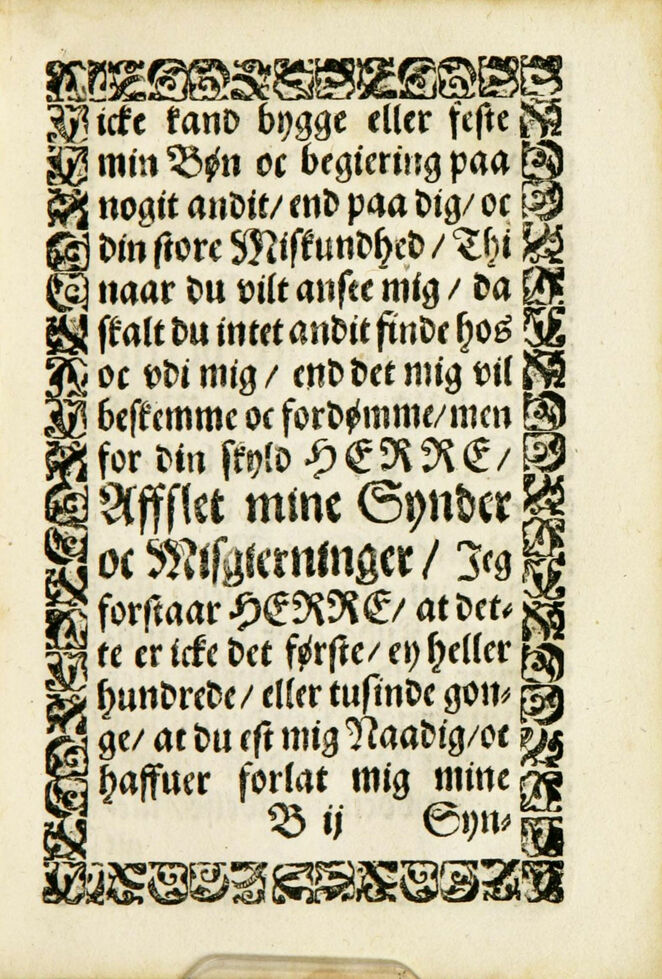 icke kand bygge eller feste
min Bøn oc begiering paa
nogit andit/ end paa dig/ oc
din store Miskundhed / Thi
naar du vilt ansee mig / da
skalt du intet andit finde hos
oc vdi mig / end det mig vil
beskemme oc fordømme/ men
for din skyld HERRE/
Affslet mine Synder
oc Misgierninger / Jeg
forstaar HERRE/ at det-
te er icke det første/ ey heller
hundrede/ eller tusinde gon-
ge/ at du est mig Naadig/ oc
haffuer forlat mig mine
B ij Syn-